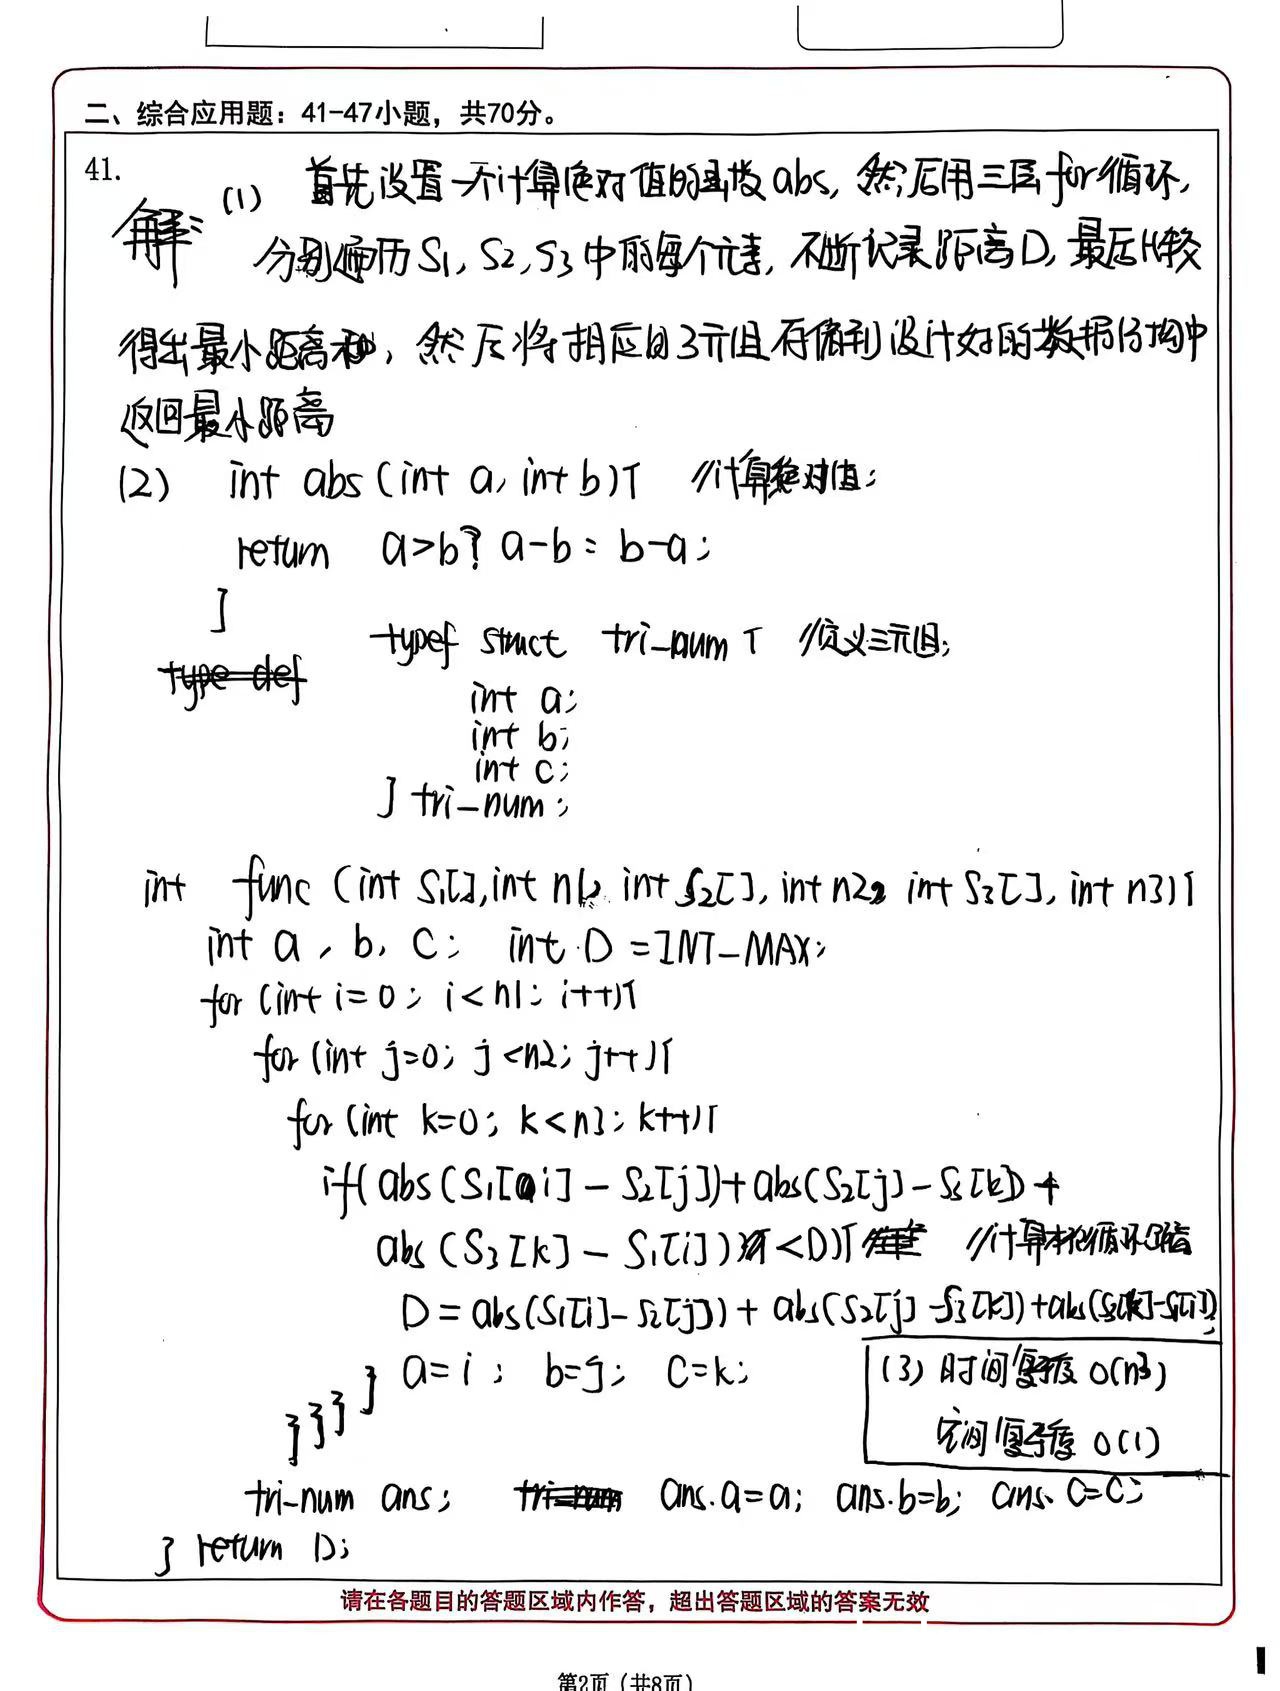 二、综合应用题：41-47小题，共70分。
41.
解：(1) 首先设置一个计算绝对值的函数abs，然后用三层for循环，
分别遍历S1, S2, S3中的每个元素，不断记录距离D，最后比较
得出最小距离，然后将相应的3元组存储到设计好的数据结构中
返回最小距离
(2) int abs (int a, int b){ //计算绝对值;
return a>b? a-b : b-a;
}
typef struct tri_num { //定义三元组;
type def
int a;
int b;
int c;
} tri_num;
int func (int S1[], int n1, int S2[], int n2, int S3[], int n3){
int a, b, c; int D = INT_MAX;
for (int i=0; i<n1; i++){
for (int j=0; j<n2; j++){
for (int k=0; k<n3; k++){
if( abs(S1[i] - S2[j])+abs(S2[j]-S3[k])+
abs(S3[k] - S1[i]) <D){ //计算本轮循环距离
D = abs(S1[i]-S2[j]) + abs(S2[j]-S3[k])+abs(S3[k]-S1[i]);
a=i; b=j; c=k;
}
}}}
(3) 时间复杂度 O(n³)
空间复杂度 O(1)
tri_num ans; tri_num ans.a=a; ans.b=b; ans.c=c;
} return D;
请在各题目的答题区域内作答，超出答题区域的答案无效
第2页（共8页）